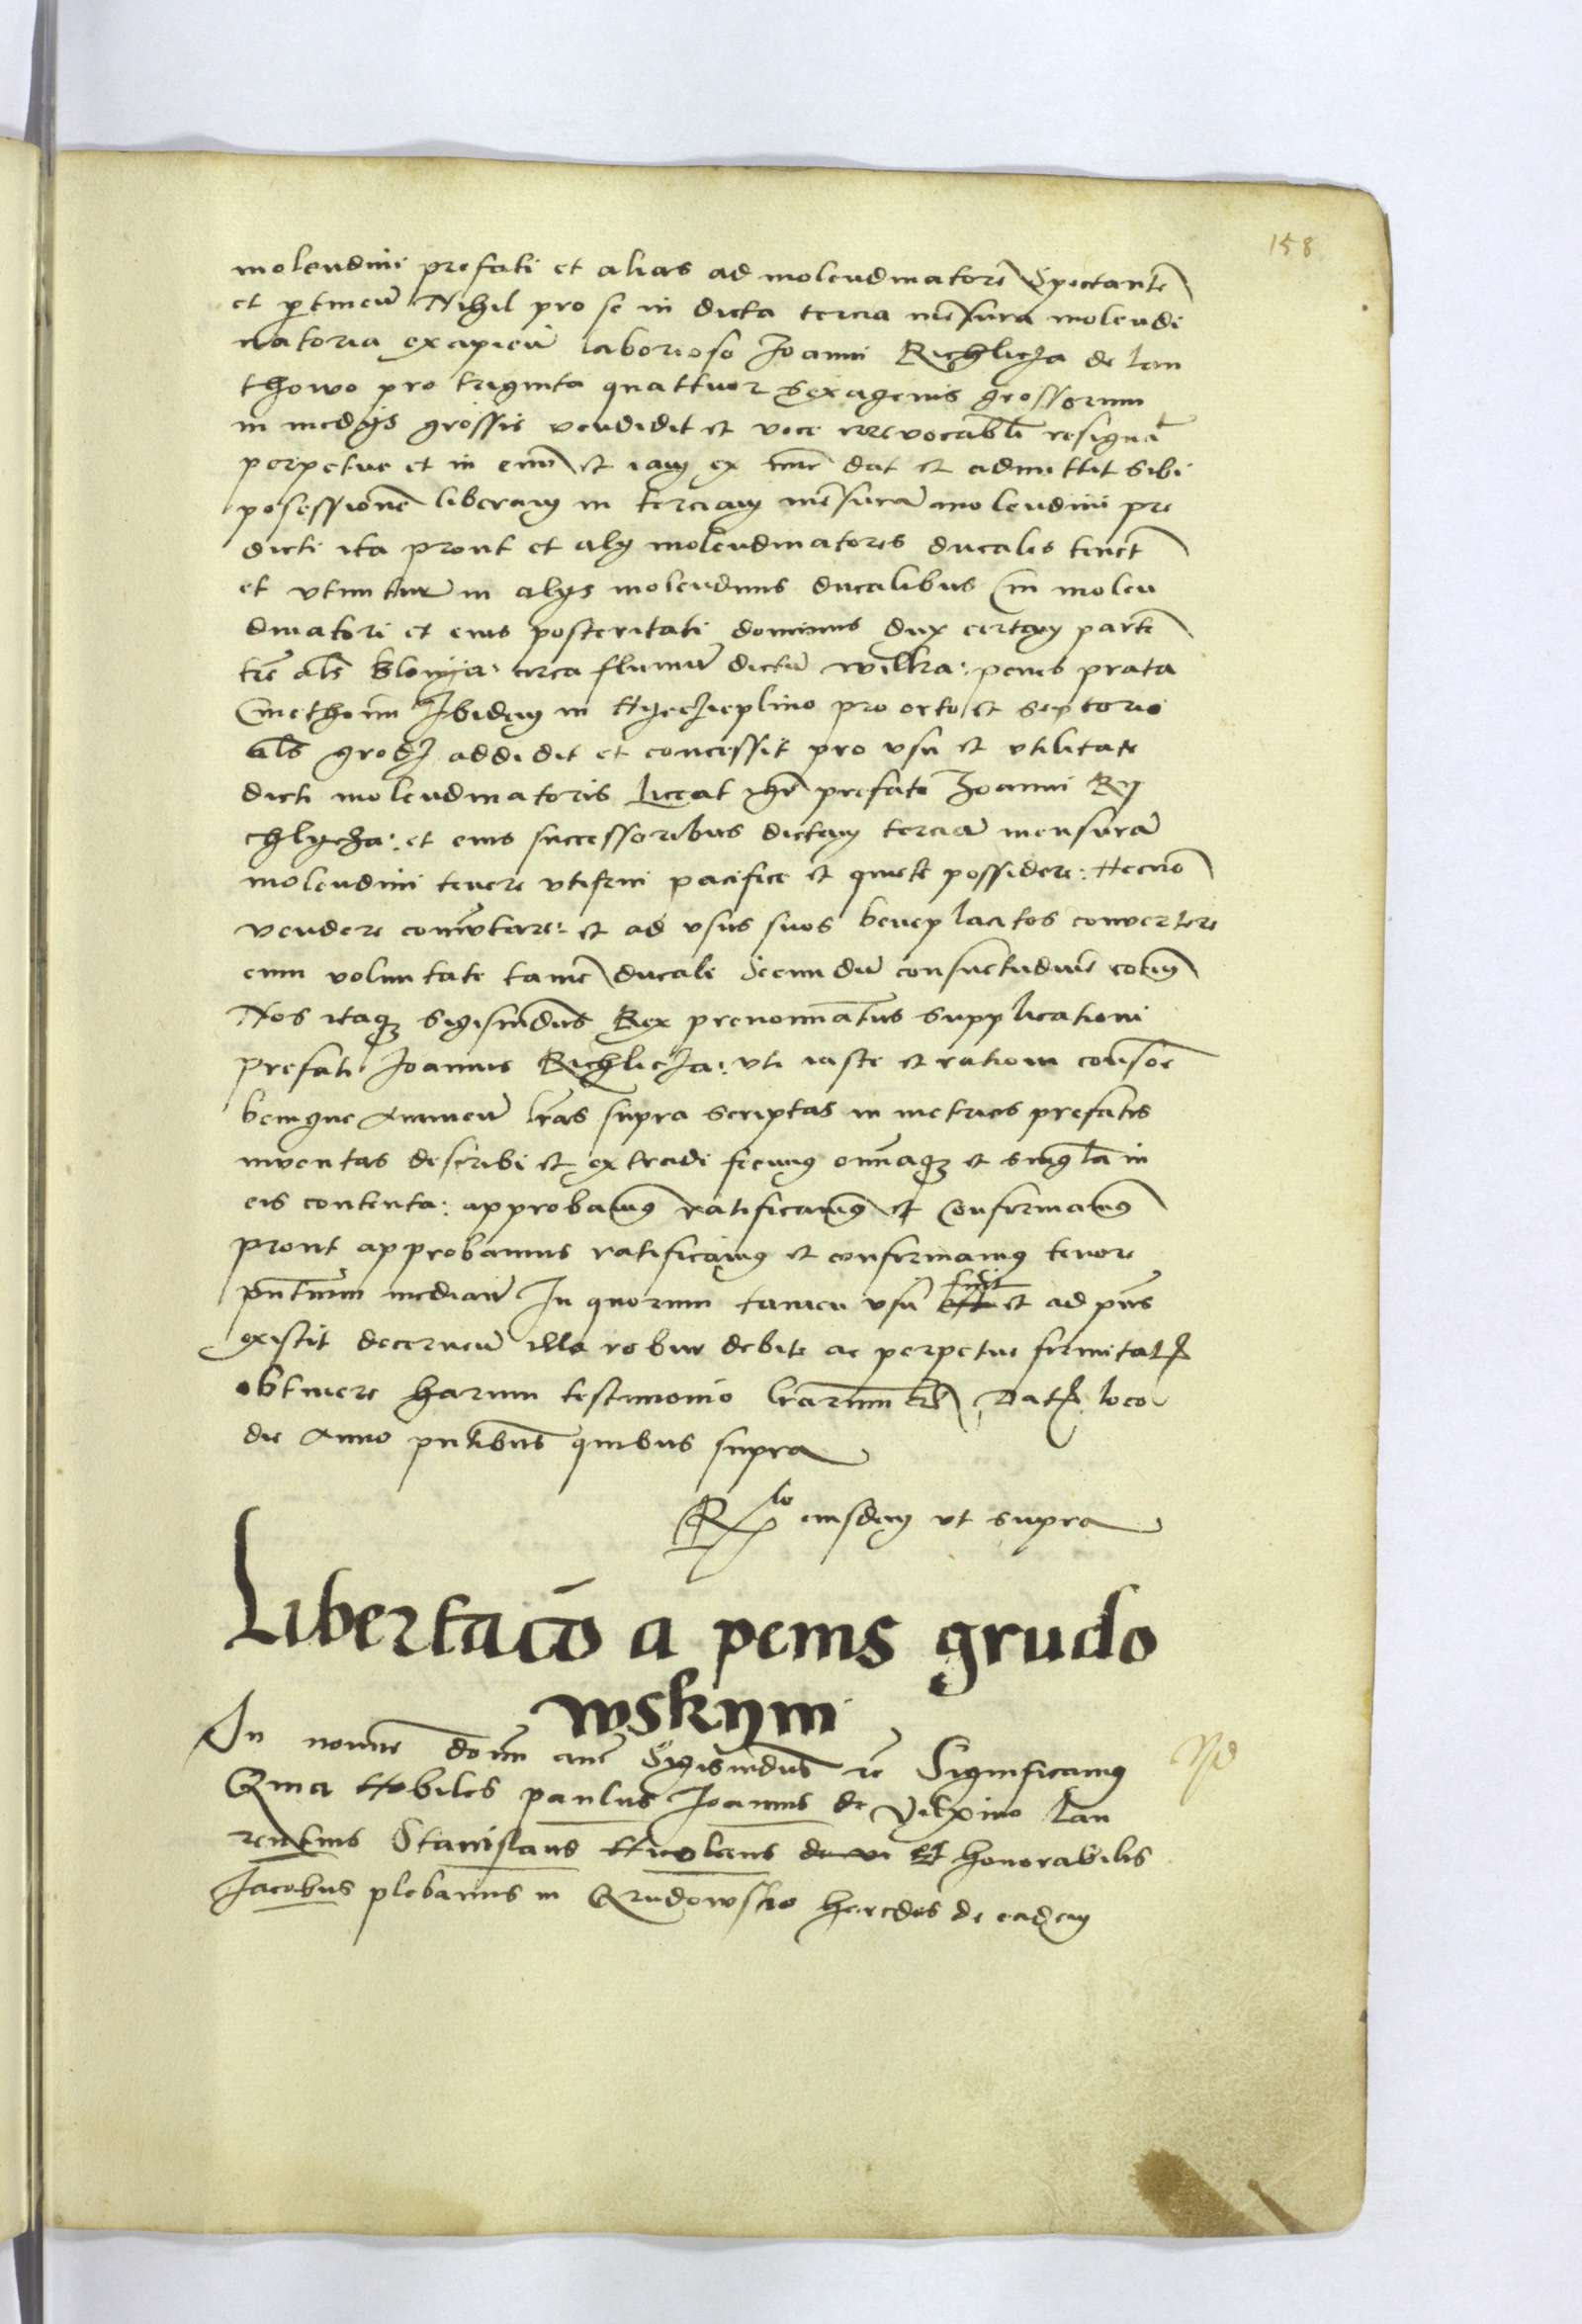 158
molendini prefati et alias ad molendinatorē Spectantē
et ptineñ Nihil pro se in dicta tercia mēsura molendi
natoria excipieñ laborioso Joanni Richlicza de Lan
thowo pro triginta quattuor sexagenis grossorum
in medys grossis vendidit et voce irrevocabłi resignāt
perpetue et in evū et iam ex nūc dat et admittit sibi
posessionē liberam in terciam mēsurā molendini pre
dicti ita prout et aly molendinatores ducales tenēt
et vtuntur in alys molendinis ducalibus Cui molen
dinatori et eius posteritati dominus dux certam partē
trē als blonya: circa flumē dictū wilka: penes prata
Cmethonū Ibidem in Nyeczieplino pro orto et septorio
als grodz addidit et concessit pro vsu et vtilitate
dicti molendinatoris Liceat igr̄ prefato Joanni Ry
chlycza: et eius successoribus dictam terciā mensurā
molendini tenere vtifrui pacifice et quiete possidere: Necnō
vendere comūtare: et ad vsus suos beneplacitos convertere
cum voluntate tamē ducali secundū consuetudinē eorum
Nos itaqz Sigismūdus Rex prenominatus supplicationi
prefati Joannis Richlicza: vti iuste et rationi consone
benigne Annueñ lrās supra scriptas in metricis prefatis
inventas describi et extradi fecimus omniaqz et singula in
eis contenta: approbamus ratificamus et Confirmamus
prout approbamus ratificamus et confirmamus tenore
pntium median In quorum tamen vsu fuit et ad pns
existit decerneñ illa robur debite ac perpetue firmitatis
obtinere harum testimonio lrārum etc Datum loco
die Anno pntibus quibus supra
Rlo eiusdem vt supra
Libertacō a penis grudo
wskym
In nomine domi ame Sigismūdus re Significamus
Quia Nobiles paulus Joannis de Lau
rentius Stanislaus Nicolaus de vi Et honorabilis
Jacobus plebanus in Grudowsko heredes de eadem